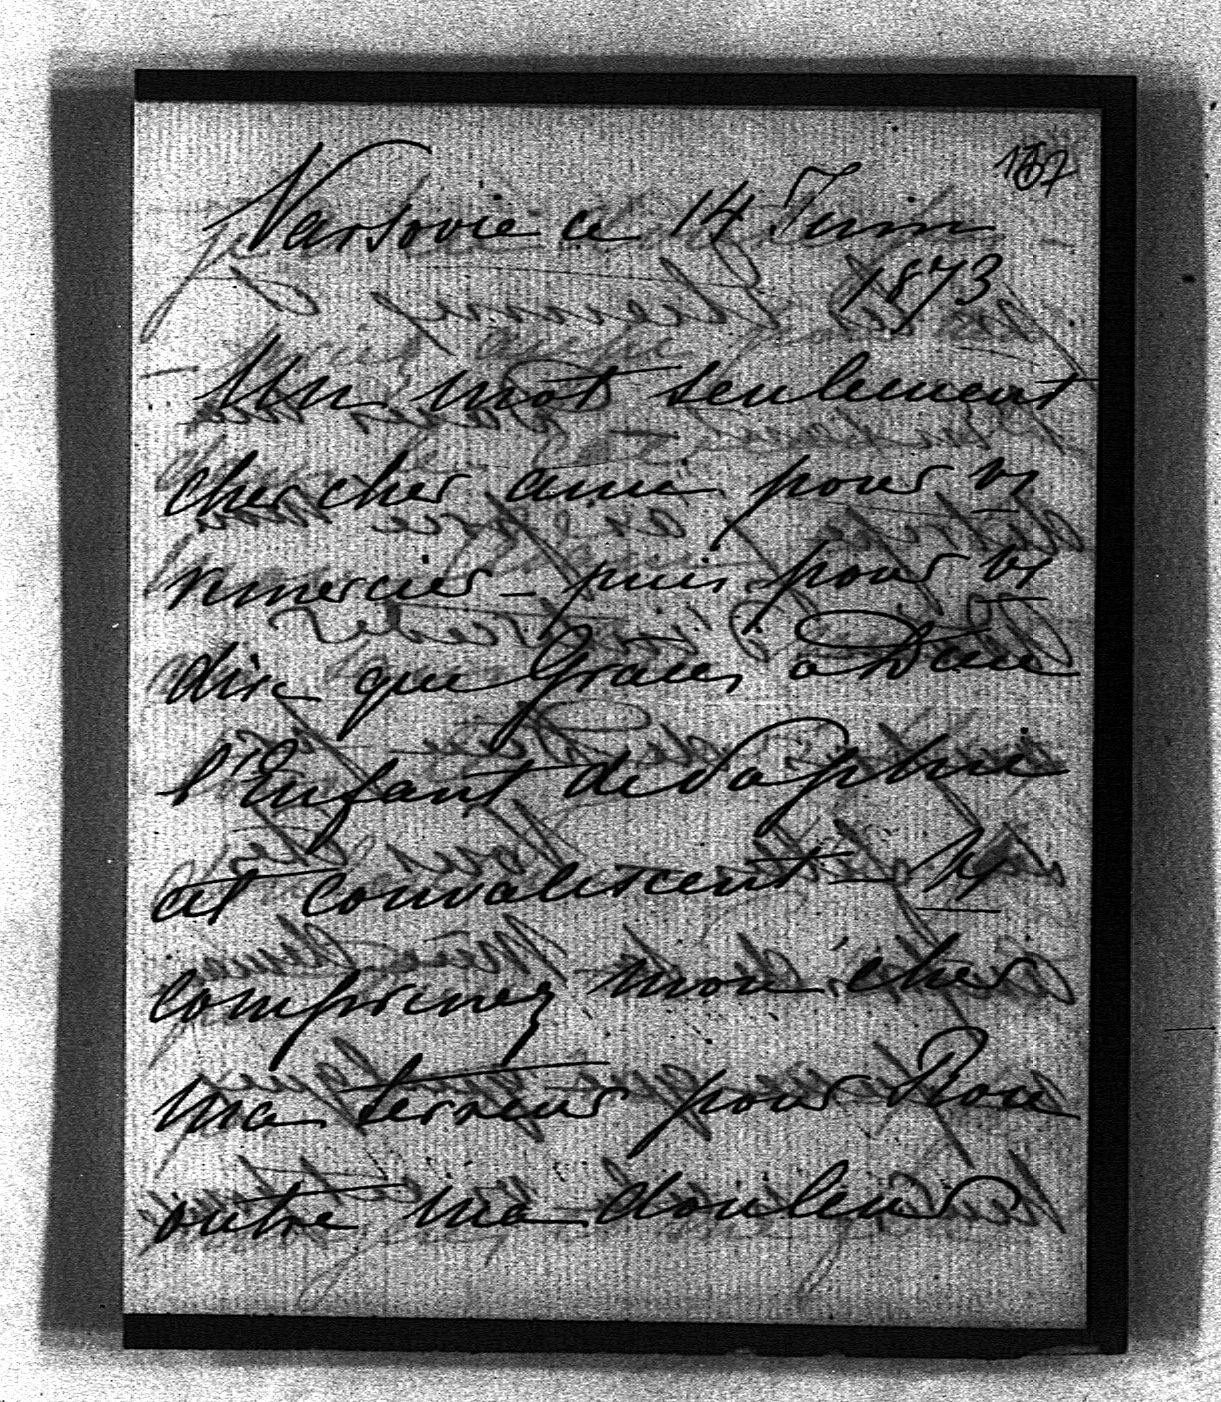 157
Varsovie ce 14 Juin
1873
Un mot seulement
cher cher ami pour vs
remercier – puis pour vs
dire que Graces à Dieu
l'Enfant de Sophie
est convalescent – Vs
comprenez mon cher
ma terreur pour
outre ma douleur